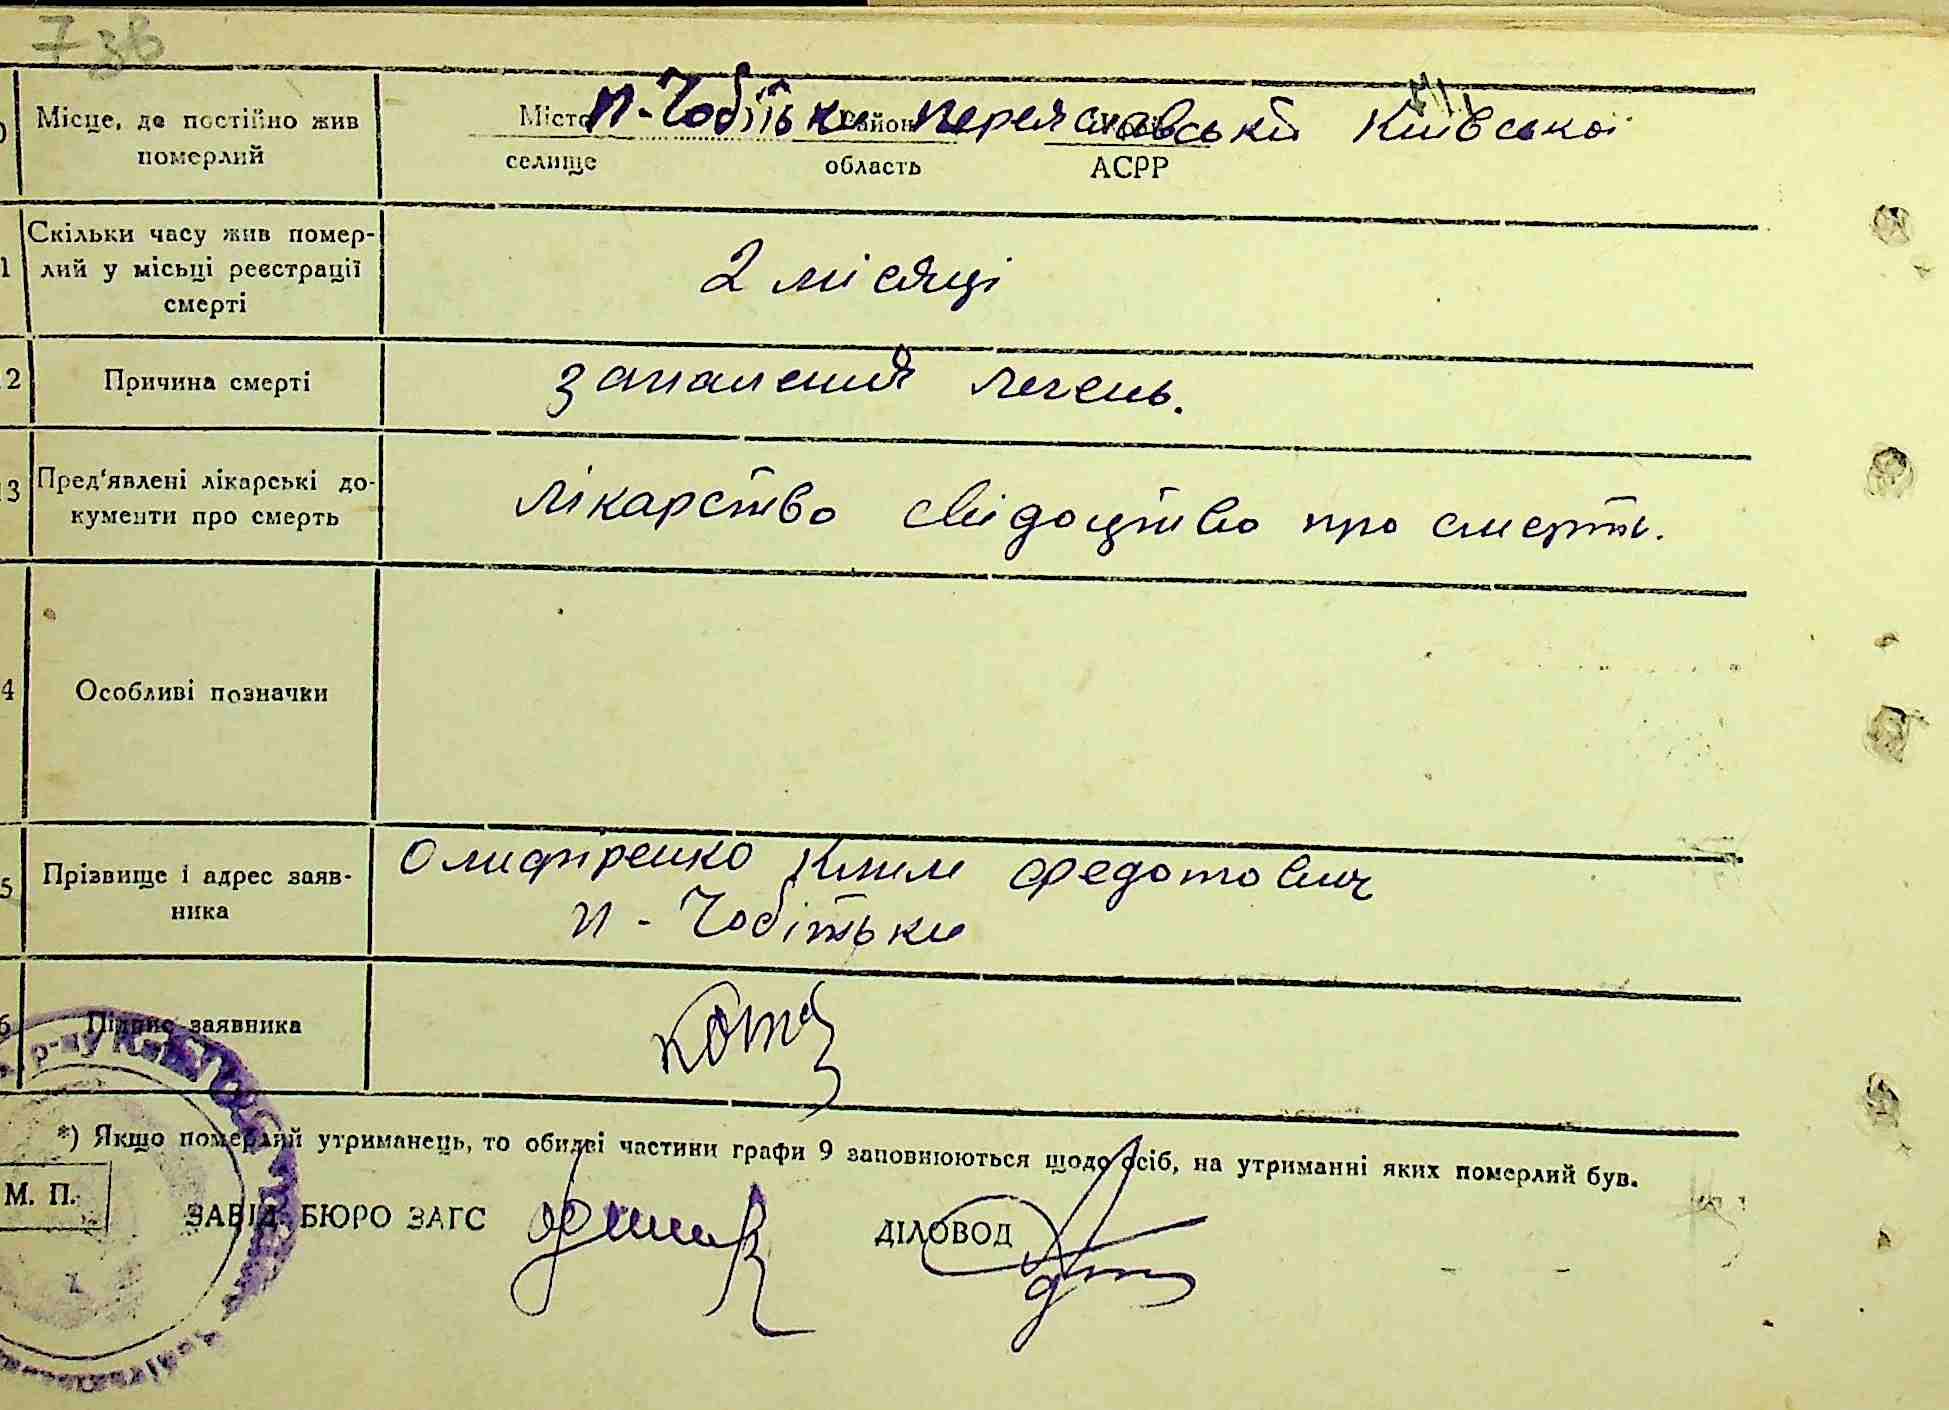 738
Місце, де постійно жив
померлий
Місто п-Чобітьки район Переяславській край Київської
селище область АСРР
1 Скільки часу жив помер-
лий у місьці реєстрації
смерті
2 місяці
2 Причина смерті
запалення легень.
13 Пред'явлені лікарські до-
кументи про смерть
лікарство свідоцтво про смерть.
4 Особливі позначки
5 Прізвище і адрес заяв-
ника
Олифіренко Клим Федотович
п-Чобітьки
6 Підпис заявника
*) Якщо померлий утриманець, то обидві частини графи 9 заповнюються щодо осіб, на утриманні яких померлий був.
М. П.
ЗАВІД. БЮРО ЗАГС ДІЛОВОД